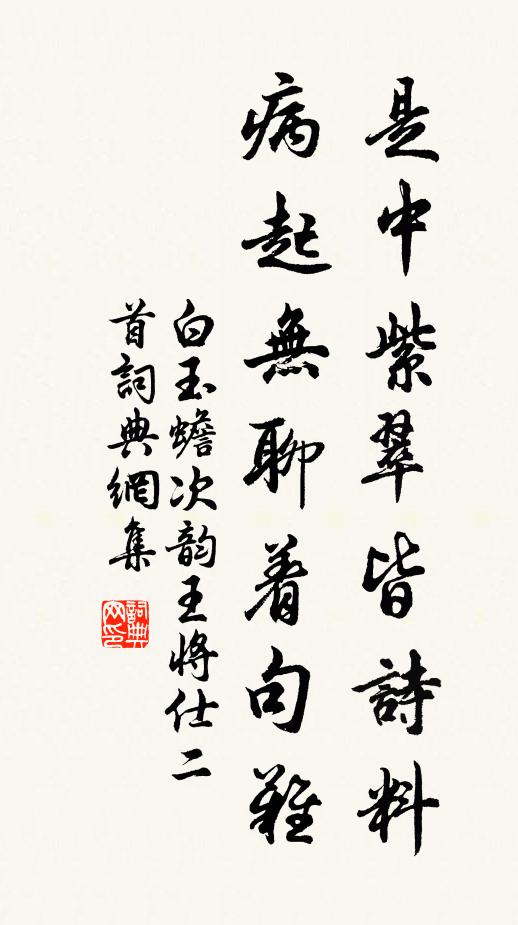 是中紫翠皆詩料
病起無聊着句難
白玉蟾次韵王將仕二
首詞典網集
詞典网印